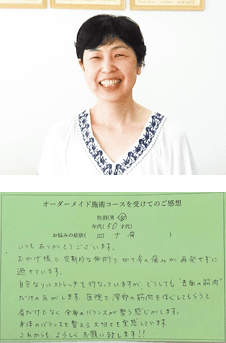 オーダーメイド施術コースを受けてのご感想
性別(男・女)
年代( 50 才代)
お悩みの症状( 四十肩 )
いつもありがとうございます。
おかげ様で、定期的な施術で、四十肩の痛みが再発せずに
過せています。
自分なりにストレッチを行なっていますが、どうしても"表面の筋肉"
だけの気がします。医院で深部の筋肉をほぐしてもらうと
肩だけでなく全身のバランスが整う感じがします。
身体のバランスを整える大切さを実感しています
これからも、よろしくお願い致します!!